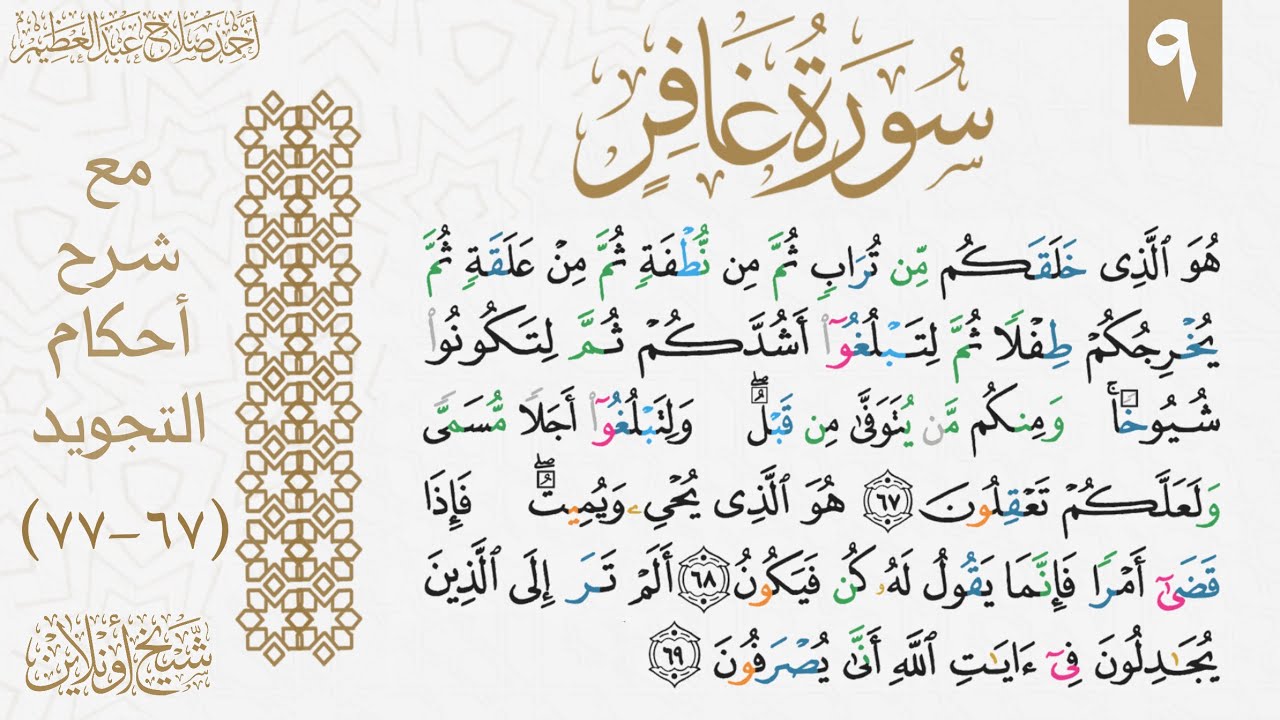 ٩
سُورَةُ غَافِرٍ
هُوَ ٱلَّذِى خَلَقَكُم مِّن تُرَابٖ ثُمَّ مِن نُّطۡفَةٖ ثُمَّ مِنۡ عَلَقَةٖ ثُمَّ
يُخۡرِجُكُمۡ طِفۡلٗا ثُمَّ لِتَبۡلُغُوٓاْ أَشُدَّكُمۡ ثُمَّ لِتَكُونُواْ
شُيُوخٗاۚ وَمِنكُم مَّن يُتَوَفَّىٰ مِن قَبۡلُۖ وَلِتَبۡلُغُوٓاْ أَجَلٗا مُّسَمّٗى
وَلَعَلَّكُمۡ تَعۡقِلُونَ ٦٧ هُوَ ٱلَّذِى يُحۡىِۦ وَيُمِيتُۖ فَإِذَا
قَضَىٰٓ أَمۡرٗا فَإِنَّمَا يَقُولُ لَهُۥ كُن فَيَكُونُ ٦٨ أَلَمۡ تَرَ إِلَى ٱلَّذِينَ
يُجَٰدِلُونَ فِىٓ ءَايَٰتِ ٱللَّهِ أَنَّىٰ يُصۡرَفُونَ ٦٩
أحمد صلاح عبد العظيم
مع
شرح
أحكام
التجويد
(٦٧-٧٧)
شيخ أونلاين